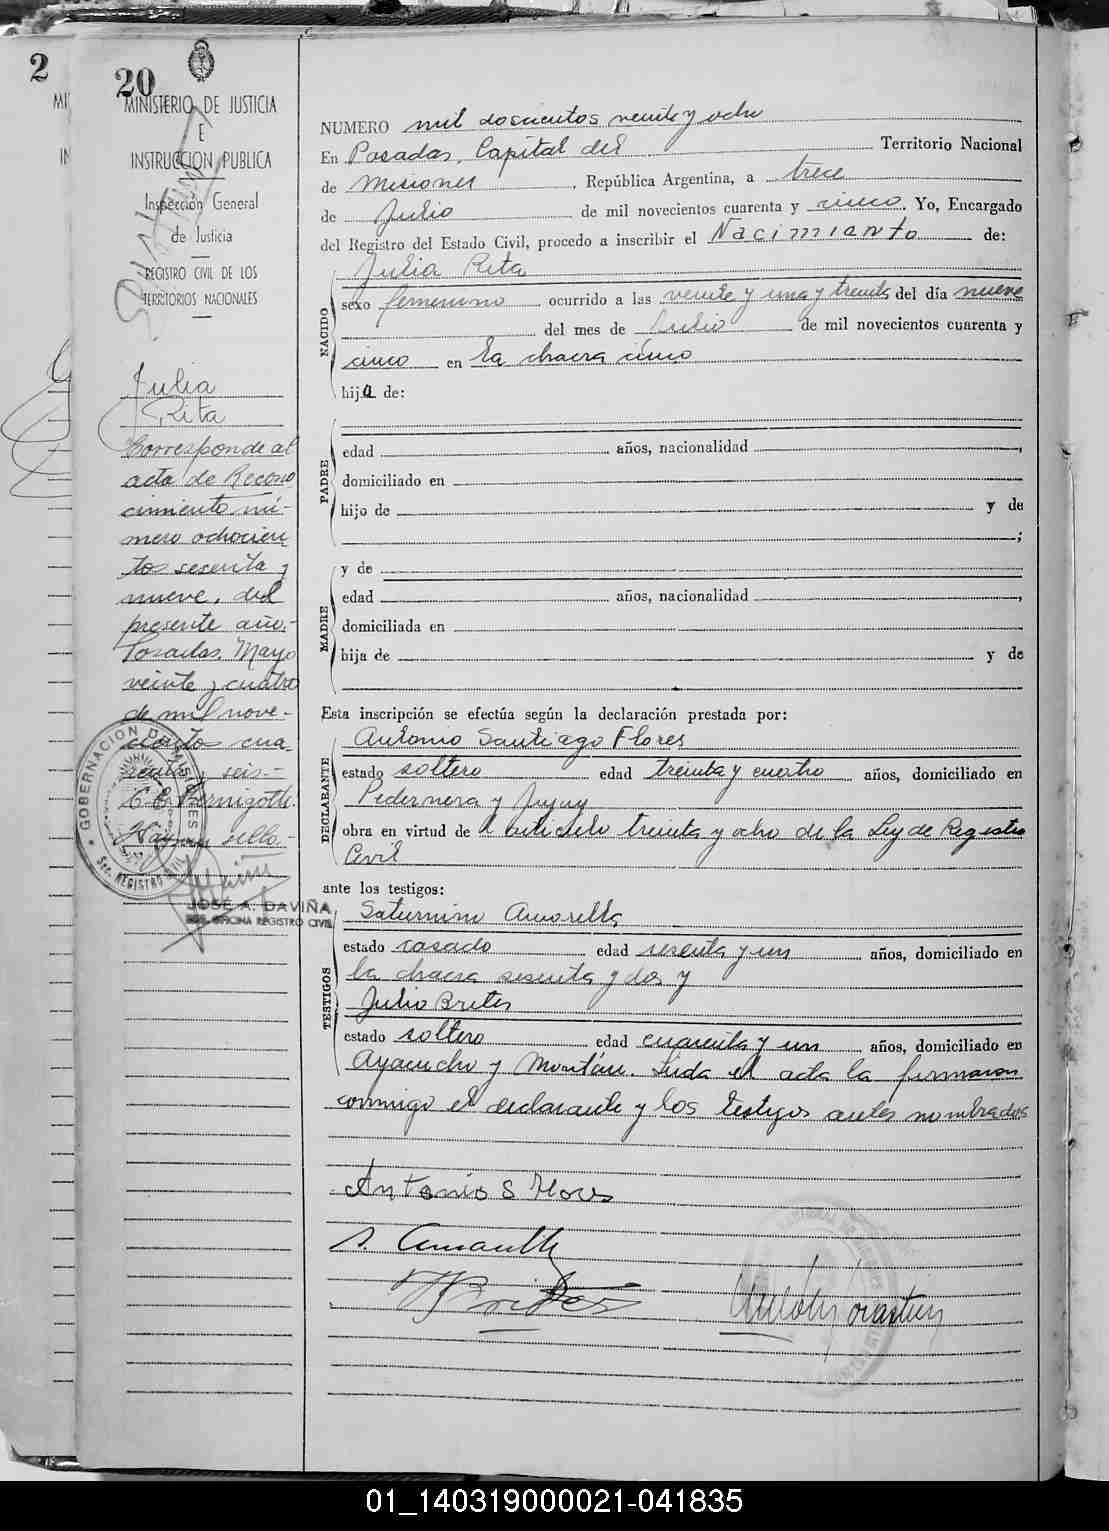 2
20
MINISTERIO DE JUSTICIA
E
INSTRUCCION PUBLICA
Inspección General
de Justicia
REGISTRO CIVIL DE LOS
TERRITORIOS NACIONALES
Julia
Rita
Corresponde al
acta de Recono
cimiento nú-
mero ochocien
tos sesenta y
nueve, del
presente año.-
Posadas, Mayo
veinte y cuatro
de mil nove-
cientos cua-
renta y seis.-
Hay un sello.-
GOBERNACION DE MISIONES
Sec. REGISTRO CIVIL
JOSÉ A. DAVIÑA
OFICINA REGISTRO CIVIL
NUMERO mil doscientos veinte y ocho
En Posadas, Capital del Territorio Nacional
de Misiones, República Argentina, a trece
de Julio de mil novecientos cuarenta y cinco. Yo, Encargado
del Registro del Estado Civil, procedo a inscribir el Nacimiento de:
NACIDO
Julia Rita
sexo femenino ocurrido a las veinte y una y treinta del día nueve
del mes de Julio de mil novecientos cuarenta y
cinco en la chacra cinco
hija de:
PADRE
edad años, nacionalidad ,
domiciliado en
hijo de y de
;
MADRE
y de
edad años, nacionalidad ,
domiciliada en
hija de y de
Esta inscripción se efectúa según la declaración prestada por:
DECLARANTE
Antonio Santiago Flores
estado soltero edad treinta y cuatro años, domiciliado en
Pedernera y Jujuy
obra en virtud de el artículo treinta y ocho de la Ley de Registro
Civil
ante los testigos:
TESTIGOS
Saturnino Amarilla
estado casado edad sesenta y un años, domiciliado en
la chacra sesenta y dos y
Julio Brites
estado soltero edad cuarenta y un años, domiciliado en
Ayacucho y Montán. Leída el acta la firmaron
conmigo el declarante y los testigos antes nombrados
Antonio S Flores
S. Amarilla
J Brites
01_140319000021-041835